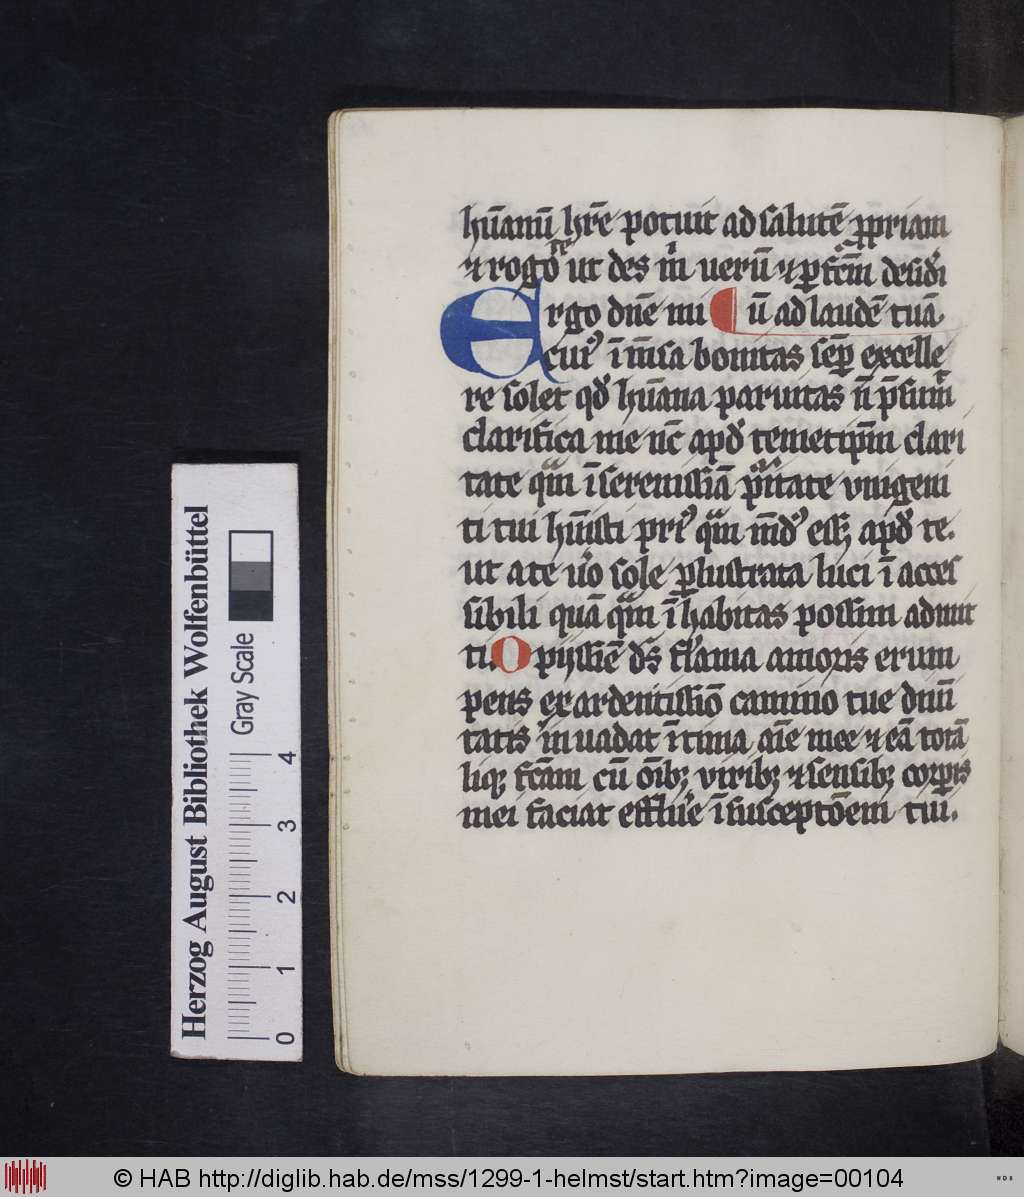 hūanū hr̄e potuit ad salutē ꝓpriam
⁊ rogo te ut des m̄ uerū ⁊ ꝑfc̄m desid̄i
Ergo dn̄e mi ū ad laudē tuā
cui᷒ ī m̄sa bonitas sēꝑ excelle
re solet qđ hūana paruitas n̄ p̄sum̄
clarifica me nc̄ apđ temetip̄m clari
tate qm̄ ī serenissīa
ti tui
ut a te ꝑlustrata luci ī acces
sibili quā qm̄ īhabitas possim adniit
ti. O pijssīe ds̄ flāma amoris erum
pens ex ardentissīo camino tue diuī
tatis inuadat ītima aīe mee ⁊ eā totā
liqꝫ fc̄am cū ōibꝫ viribꝫ ⁊ sensibꝫ corꝑis
mei faciat efflue ī susceptōem tui.
Herzog August Bibliothek Wolfenbüttel
Gray Scale
0 1 2 3 4
© HAB http://diglib.hab.de/mss/1299-1-helmst/start.htm?image=00104